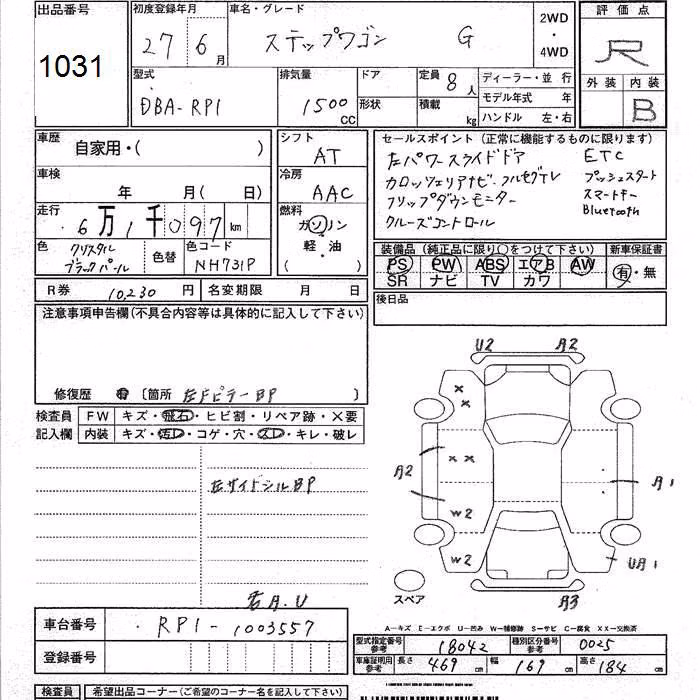 出品番号
1031
初度登録年月
27 6月
車名・グレード
ステップワゴン G
2WD
・
4WD
評価点
R
外装 内装
B
型式
DBA-RP1
排気量
1500 CC
ドア
形状
定員 8人
積載 kg
ディーラー・並 行
モデル年式 年
ハンドル 左・右
車歴
自家用・( )
車検
年 月( 日)
走行
6万1千097 km
色
クリスタル
ブラックパール
色替
色コード
NH731P
シフト
AT
冷房
AAC
燃料
ガソリン
・
軽・油
( )
セールスポイント (正常に機能するものに限ります)
左パワースライドドア
カロッツェリアナビ、フルセグTV
フリップダウンモニター
クルーズコントロール
ETC
プッシュスタート
スマートキー
Bluetooth
装備品 (純正品に限り○をつけて下さい)
PS PW ABS エアB AW
SR ナビ TV カワ
新車保証書
有・無
R券 10,230 円
名変期限 月 日
後日品
注意事項申告欄(不具合内容等は具体的に記入して下さい)
修復歴 有 〔箇所 左Fピラー BP 〕
検査員
記入欄
FW キズ・飛石・ヒビ割・リペア跡・X要
内装 キズ・汚レ・コゲ・穴・スレ・キレ・破レ
左サイドシルBP
右A.U
U2 A2
A2
W2
W2
A1
UA1
A3
スペア
A―キズ E―エクボ U―凹み W―補修跡 S―サビ C―腐食 XX―交換済
車台番号
RP1-1003557
登録番号
型式指定番号
参考
18042
種別区分番号
参考
0025
車庫証明用
参考
長さ 469 cm 幅 169 cm 高さ 184 cm
検査員
希望出品コーナー(ご希望のコーナー名を記入して下さい)